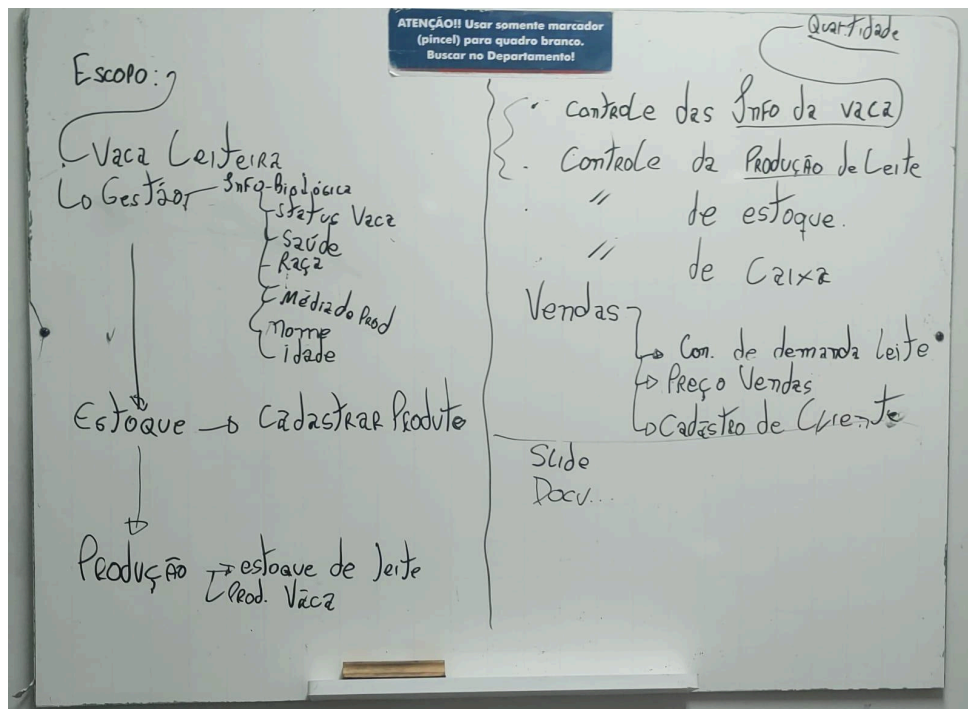 ATENÇÃO!! Usar somente marcador
(pincel) para quadro branco.
Buscar no Departamento!
Escopo:
Vaca Leiteira
Gestão
Info-Biológica
Status Vaca
Saúde
Raça
Média de Prod
nome
idade
Estoque → Cadastrar Produto
Produção → estoque de leite
Prod. Vaca
Quantidade
• Controle das Info da vaca
• Controle da Produção de Leite
• " de estoque.
• " de Caixa
Vendas
Con. de demanda leite
Preço Vendas
Cadastro de Cliente
Slide
Docu...